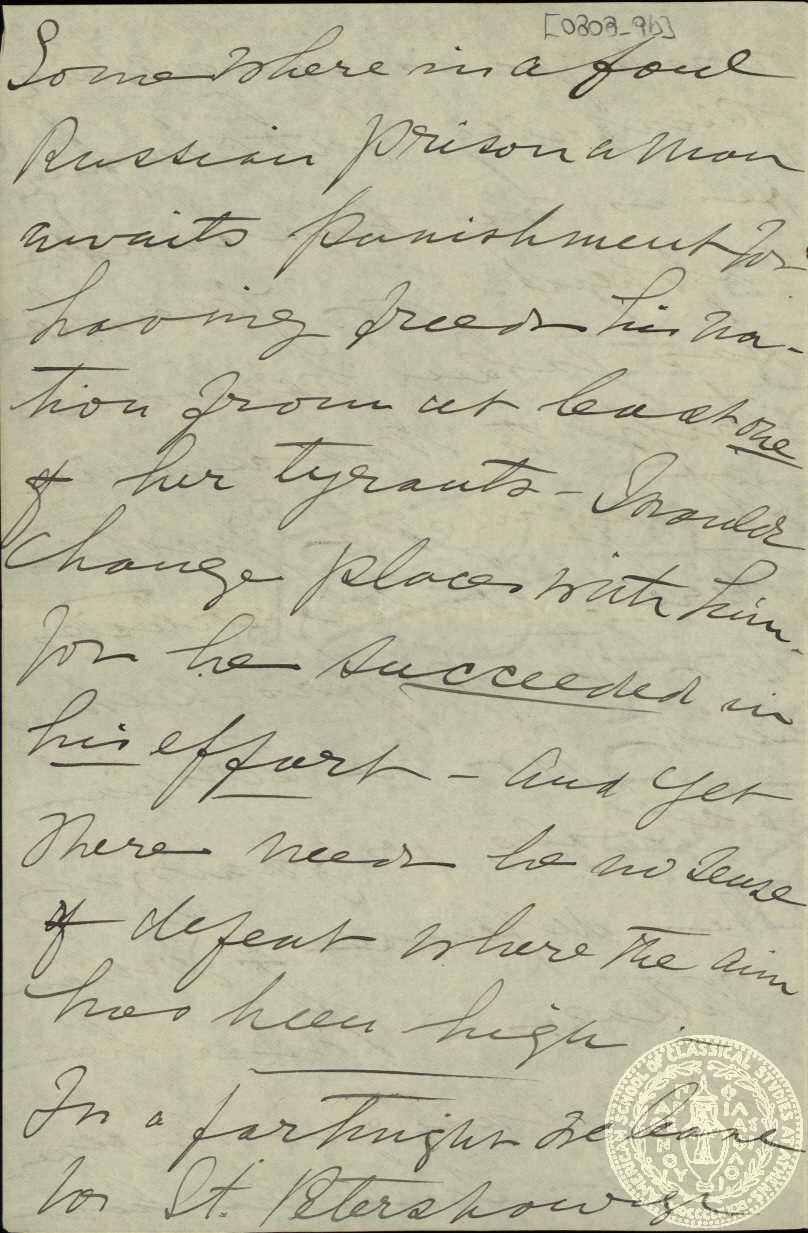 [0303-9b]
Somewhere in a foul
Russian prison a man
awaits punishment for
having freed his na-
tion from at least one
of her tyrants – I would
change places with him –
for he succeeded in
his effort – and yet
there need be no sense
of defeat where the aim
has been high –
In a fortnight we leave
for St. Petersbourg
AMERICAN SCHOOL OF CLASSICAL STUDIES AT ATHENS